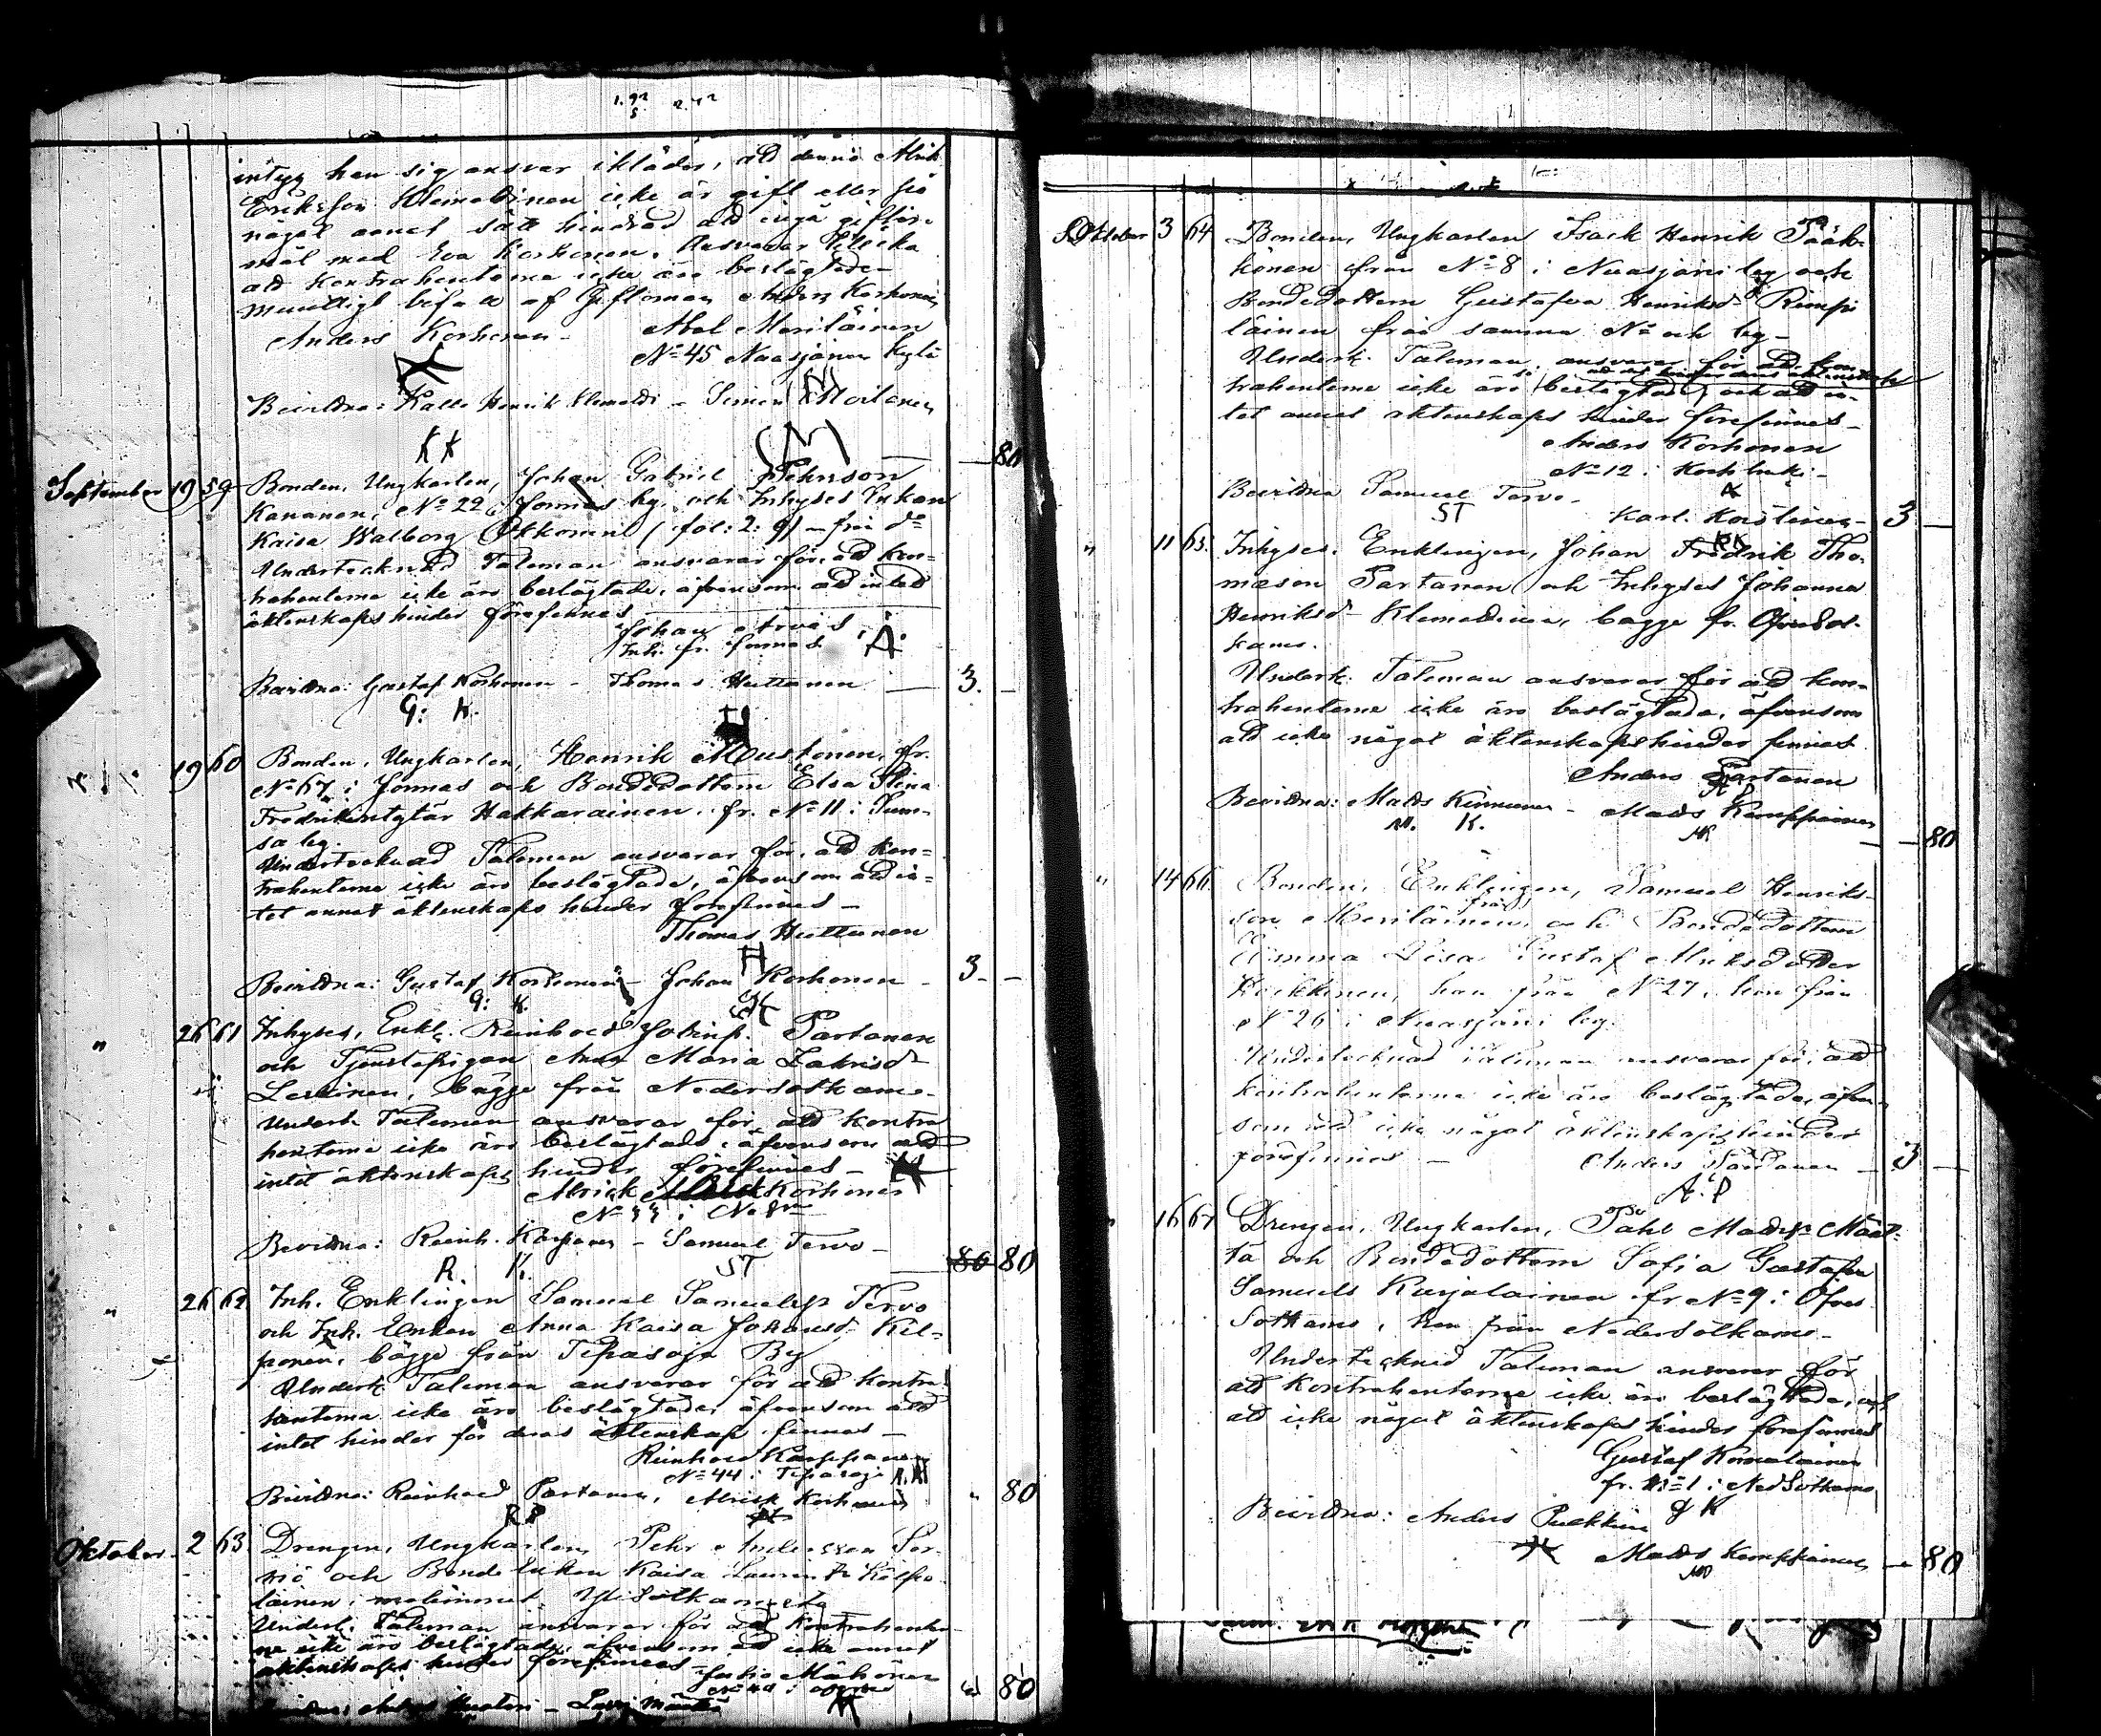 intyg han sig ansvar ikläder, att denne Alrik
Eriksson Klemetinen icke är gift eller på
något annat sätt hindrad att ingå giftor-
mål med Eva Korhonen. Ansvarar likaså
att kontrahenterna icke äro beslägtade
muntligt bifall af giftoman Anders Korhonen
Anders Korhonen - Abel Meriläinen
N:o 45 Naasjärvi kylä
Bevittna: Kalle Henrik Klemetti - Simon Moilanen
K K
80
September 19 59 Bonden, Ungkarlen, Johan Gabriel Pehrsson
Kananen, N:o 22 Jormas by, och Inhyses Enkan
Kaisa Walborg Okkonen (fol: 2: 9) - från d:o
Undertecknad Taleman ansvarar för, att kon-
trahenterna icke äro beslägtade, äfvensom att intet
äktenskaps hinder förefinnes
Johan Arvas
Inh. fr. Jormas. A.
Bevittna: Gustaf Korhonen - Thomas Huttunen — 3. -
G: K. H
19 60 Bonden, Ungkarlen, Henrik Mustonen, fr.
N:o 67 i Jormas och Bondedottern Elsa Stina
Fredrikintytär Hakkarainen fr. N:o 11 i
sa by.
Undertecknad Taleman ansvarar för, att kon-
trahenterna icke äro beslägtade, äfvensom att in-
tet annat äktenskaps hinder förefinnes -
Thomas Huttunen
H
Bevittna: Gustaf Korhonen - Johan Korhonen - 3 - -
G: K.
" 26 61 Inhyses, Enkl. Reinhold Partanen
och Tjenstepigan Anna Maria Zakrisd
Leskinen, bägge från Nedersotkamo.
Undert. Taleman ansvarar för, att kontra
henterna icke äro beslägtade, äfvensom att
intet äktenskaps hinder förefinnes -
Alrik Korhonen
Bevittna: Reinh. Karppanen - Samuel Tervo - 80
R. K. ST
" 26 62 Inh. Enklingen Samuel Samuelss. Tervo
och Inh. Enkan Anna Kaisa Johansd. Kil-
ponen, bägge från Tipasoja By
Undert. Taleman ansvarar för att kontra-
henterna icke äro beslägtade, äfvensom att
intet hinder för deras äktenskap finnes -
Reinhold Karppanen
N:o 44 i Tipasoja
Bevittna: Reinhold Partanen, Alrik Korhonen " 80
R P
Oktober 2 63 Drengen, Ungkarlen, Pehr Andersson
och Bonde Enkan Kaisa
läinen, molemmat Ylisotkamosta
Undert. Taleman ansvarar för att Kontrahenter-
na icke äro beslägtade, äfvensom att icke annat
äktenskaps hinder förefinnes -
Juho Mähönen
" 80
Oktober 3 64 Bonden, Ungkarlen Isack Henrik Pääk-
könen från N:o 8 i Naasjärvi by och
Bondedottern Gustafva Henriksd Rimpi
läinen från samma N:o och by -
Undert. Taleman ansvarar för att kon-
trahenterne icke äro beslägtade och att in-
tet annat äktenskaps hinder förefinnes -
Anders Korhonen
N:o 12 i Korholanmäki -
Bevittna Samuel Tervo -
ST Karl. 3 -
" 11 65. Inhyses. Enklingen, Johan Fredrik Tho-
masson Partanen och Inhyses Johanna
Henriksd - Klemetinen, bägge fr. Öfversot-
kamo.
Undert. Taleman ansvarar för att kon-
trahenterne icke äro beslägtade, äfvensom
att icke något äktenskapshinder finnes
Anders Partanen
A P
Bevittna: Matts Kinnunen - Matts Kemppainen
M. K. MK
- 80
" 14 66. Bonden, Enklingen, Samuel Henriks-
son Meriläinen, och Bondedottern
Emma Lisa Gustaf Alriksdotter
han från N:o 27, hon från
N:o 26 i Naasjärvi by.
Undertecknad Taleman ansvarar för, att
kontrahenterne icke äro beslägtade, äfven-
som att icke något äktenskapshinder
förefinnes - Anders Partanen - 3 -
A. P
" 16 67 Drengen, Ungkarlen, Påhl Mattss. Määt-
tä och Bondedottern Sofia Gustafva
Samuels Karjalainen fr. N:o 9 i Öfver
Sotkamo, han från Nedersotkamo -
Undertecknad Taleman ansvarar för
att Kontrahenterne icke äro beslägtade, och
att icke något äktenskaps hinder förefinnes
Gustaf Komulainen
fr. N:o 1 i Ned Sotkamo
G K
Bevittna: Anders
Matts Kemppainen - 80
MK